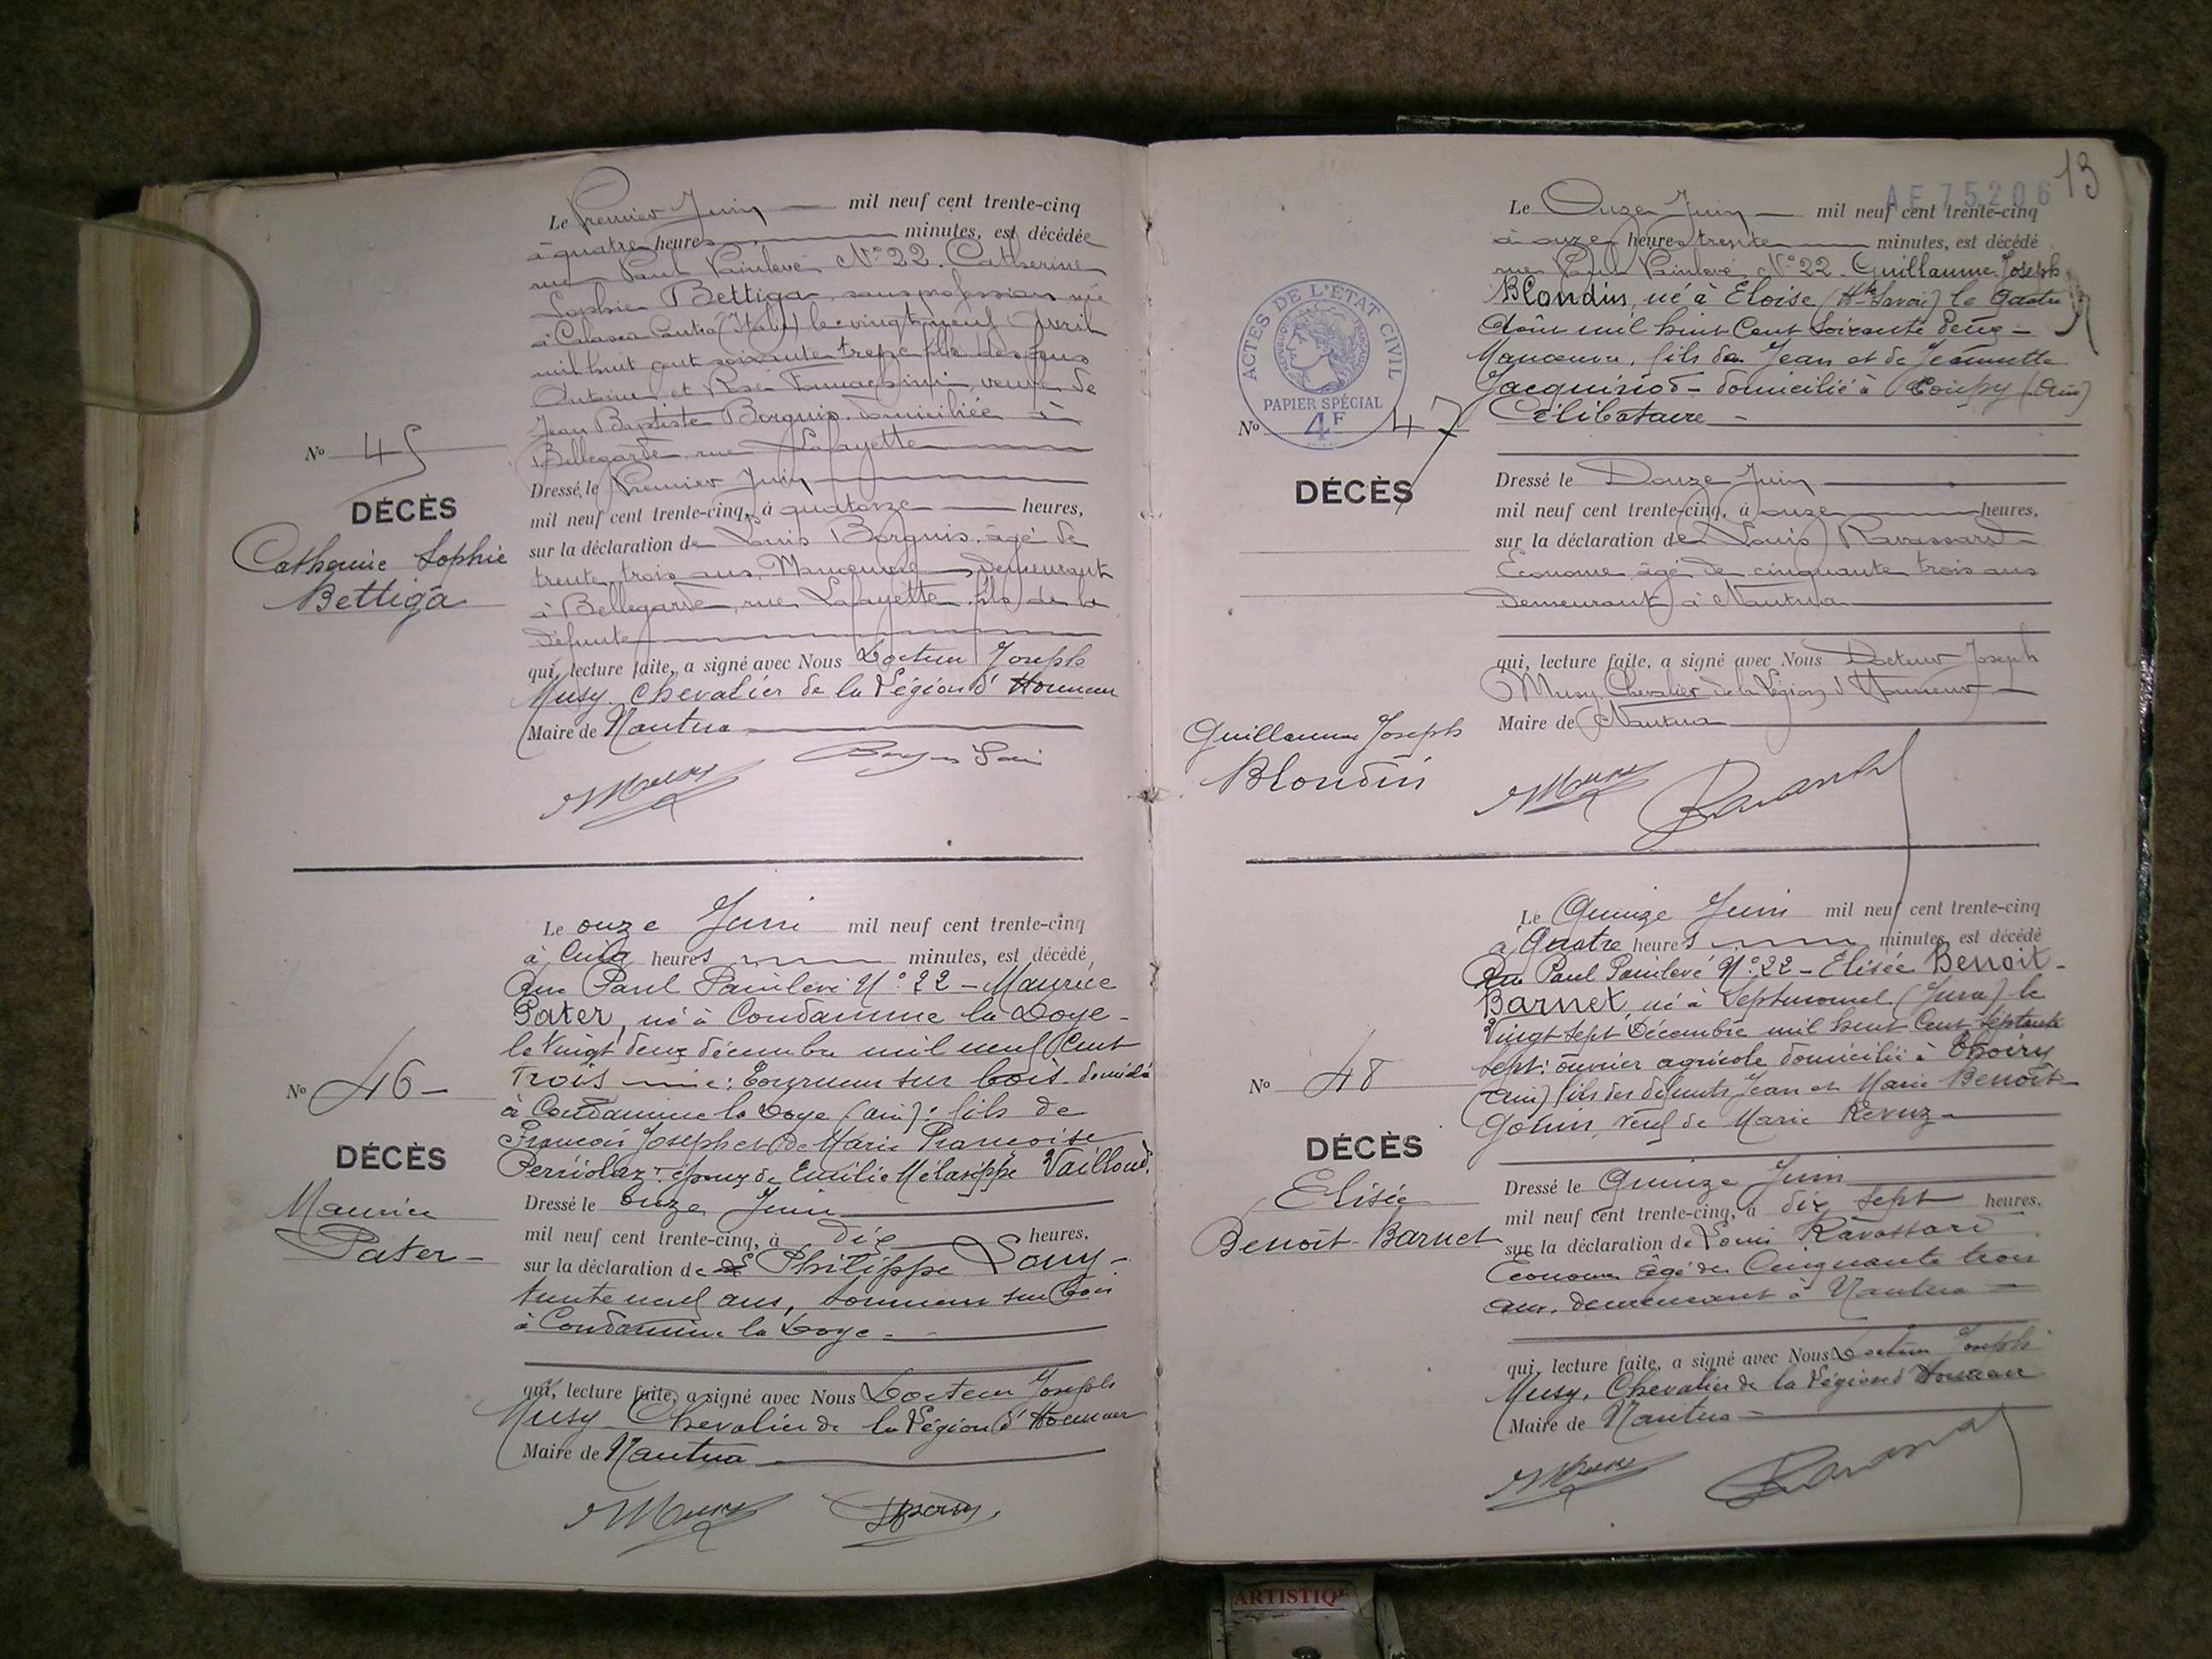 Le Premier Juin mil neuf cent trente-cinq
à quatre heures minutes, est décédée
rue Paul Painlevé N° 22. Catherine
Sophie Bettiga, sans profession née
à Calasca (Italie) le vingt neuf Avril
mil huit cent soixante treize fille des feus
Antoine et Rose, veuve de
Jean Baptiste Borgnis. domiciliée à
Bellegarde, rue Lafayette
N° 45
DÉCÈS
Catherine Sophie
Bettiga
Dressé le Premier Juin
mil neuf cent trente-cinq, à quatorze heures,
sur la déclaration de Louis Borgnis. âgé de
trente trois ans, Manœuvre, demeurant
à Bellegarde, rue Lafayette, fils de la
défunte
qui, lecture faite, a signé avec Nous Docteur Joseph
Musy. Chevalier de la Légion d'Honneur
Maire de Nantua
Le onze Juin mil neuf cent trente-cinq
à Cinq heures minutes, est décédé
Rue Paul Painlevé N° 22 - Maurice
Pater, né à Condamine la Doye -
le Vingt deux décembre mil neuf Cent
Trois : Tourneur sur bois domicilié
à Condamine la Doye (ain) : fils de
François Joseph et de Marie Françoise
Perriolaz : époux de Emilie Vailloud.
N° 46 -
DÉCÈS
Maurice
Pater -
Dressé le Onze Juin
mil neuf cent trente-cinq, à dix heures,
sur la déclaration de Philippe
trente neuf ans, tourneur sur bois
à Condamine la Doye -
qui, lecture faite, a signé avec Nous Docteur Joseph
Musy - Chevalier de la Légion d'Honneur
Maire de Nantua
13
AE 75206
Le Onze Juin mil neuf cent trente-cinq
à onze heures trente minutes, est décédé
rue Paul Painlevé, N° 22. Guillaume Joseph
Blondin, né à Eloise (Hte Savoie) le quatre
Août mil huit Cent Soixante deux -
Manœuvre, fils de Jean et de Jeannette
Jacquinod - domicilié à Coupy (Ain)
Célibataire -
ACTES DE L'ÉTAT CIVIL
PAPIER SPÉCIAL
4F
N° 47
DÉCÈS
Guillaume Joseph
Blondin
Dressé le Douze Juin
mil neuf cent trente-cinq, à onze heures,
sur la déclaration de Louis Ravassard
Econome, âgé de cinquante trois ans
demeurant à Nantua
qui, lecture faite, a signé avec Nous Docteur Joseph
Musy, Chevalier de la Légion d'Honneur
Maire de Nantua
Le Quinze Juin mil neuf cent trente-cinq
à Quatre heures minutes, est décédé
Rue Paul Painlevé N° 22 - Elisée Benoit-
Barnet, né à Septmoncel (Jura) le
Vingt Sept Décembre mil huit Cent Septante
Sept : ouvrier agricole domicilié à Thoiry
(ain) fils des défunts Jean et Marie Benoît-
Gonin, Veuf de Marie
N° 48
DÉCÈS
Elisée
Benoît-Barnet
Dressé le Quinze Juin
mil neuf cent trente-cinq, à dix sept heures,
sur la déclaration de Louis Ravassard
Econome âgé de Cinquante trois
ans. demeurant à Nantua
qui, lecture faite, a signé avec Nous Docteur Joseph
Musy, Chevalier de la Légion d'Honneur
Maire de Nantua
ARTISTIQ